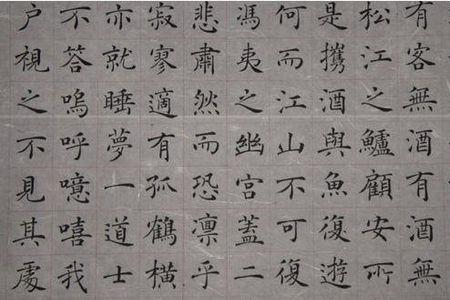 有客無酒有酒無
松江之鱸顧安所
是攜酒與魚復遊
何而江山不可復
馮夷之幽宮蓋二
悲肅然而恐凜乎
寂寥適有孤鶴橫
亦就睡夢一道士
不答嗚呼噫嘻我
户視之不見其處